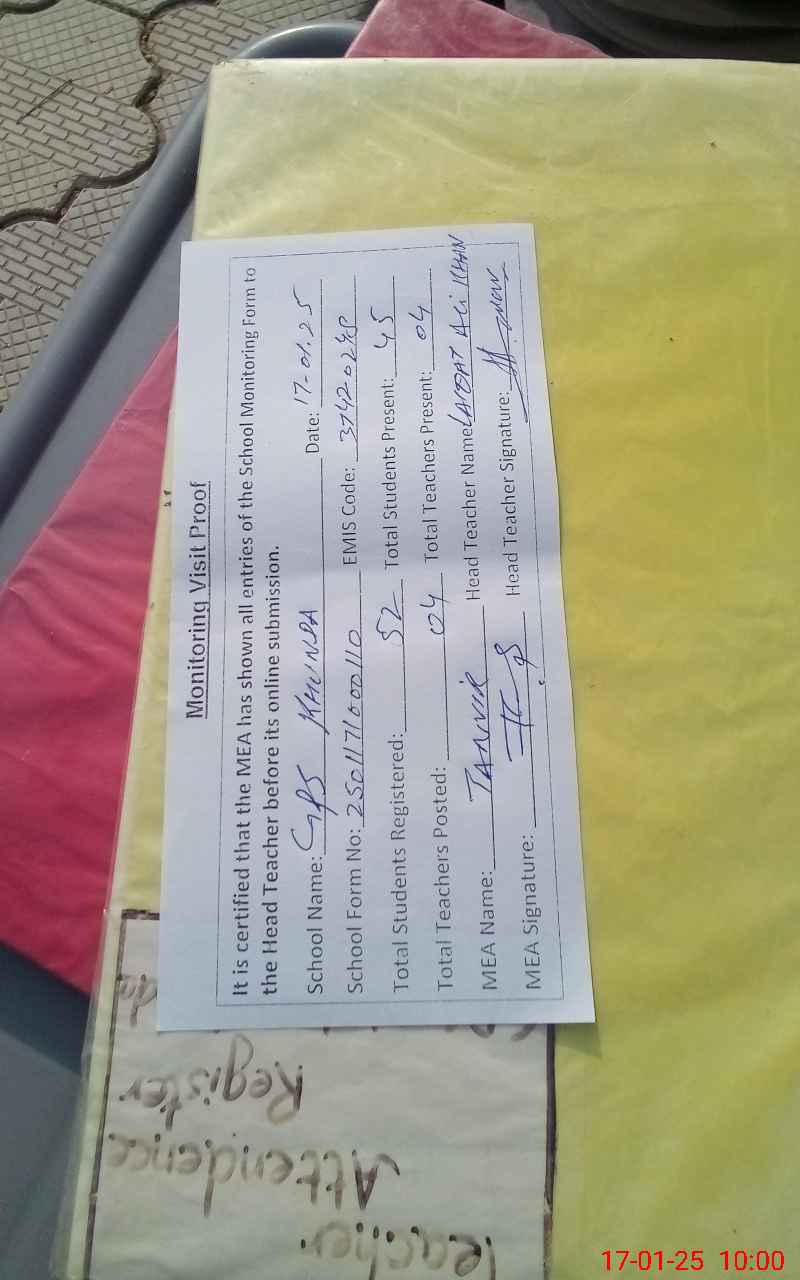 Monitoring Visit Proof
It is certified that the MEA has shown all entries of the School Monitoring Form to
the Head Teacher before its online submission.
School Name: GPS KHUNDA Date: 17-01.25
School Form No: 2501171000110 EMIS Code: 37420248
Total Students Registered: 52 Total Students Present: 45
Total Teachers Posted: 04 Total Teachers Present: 04
MEA Name: TANVIR Head Teacher Name: LAIQAT Ali KHAN
MEA Signature: Head Teacher Signature:
Teacher
Attendence
Register
17-01-25 10:00